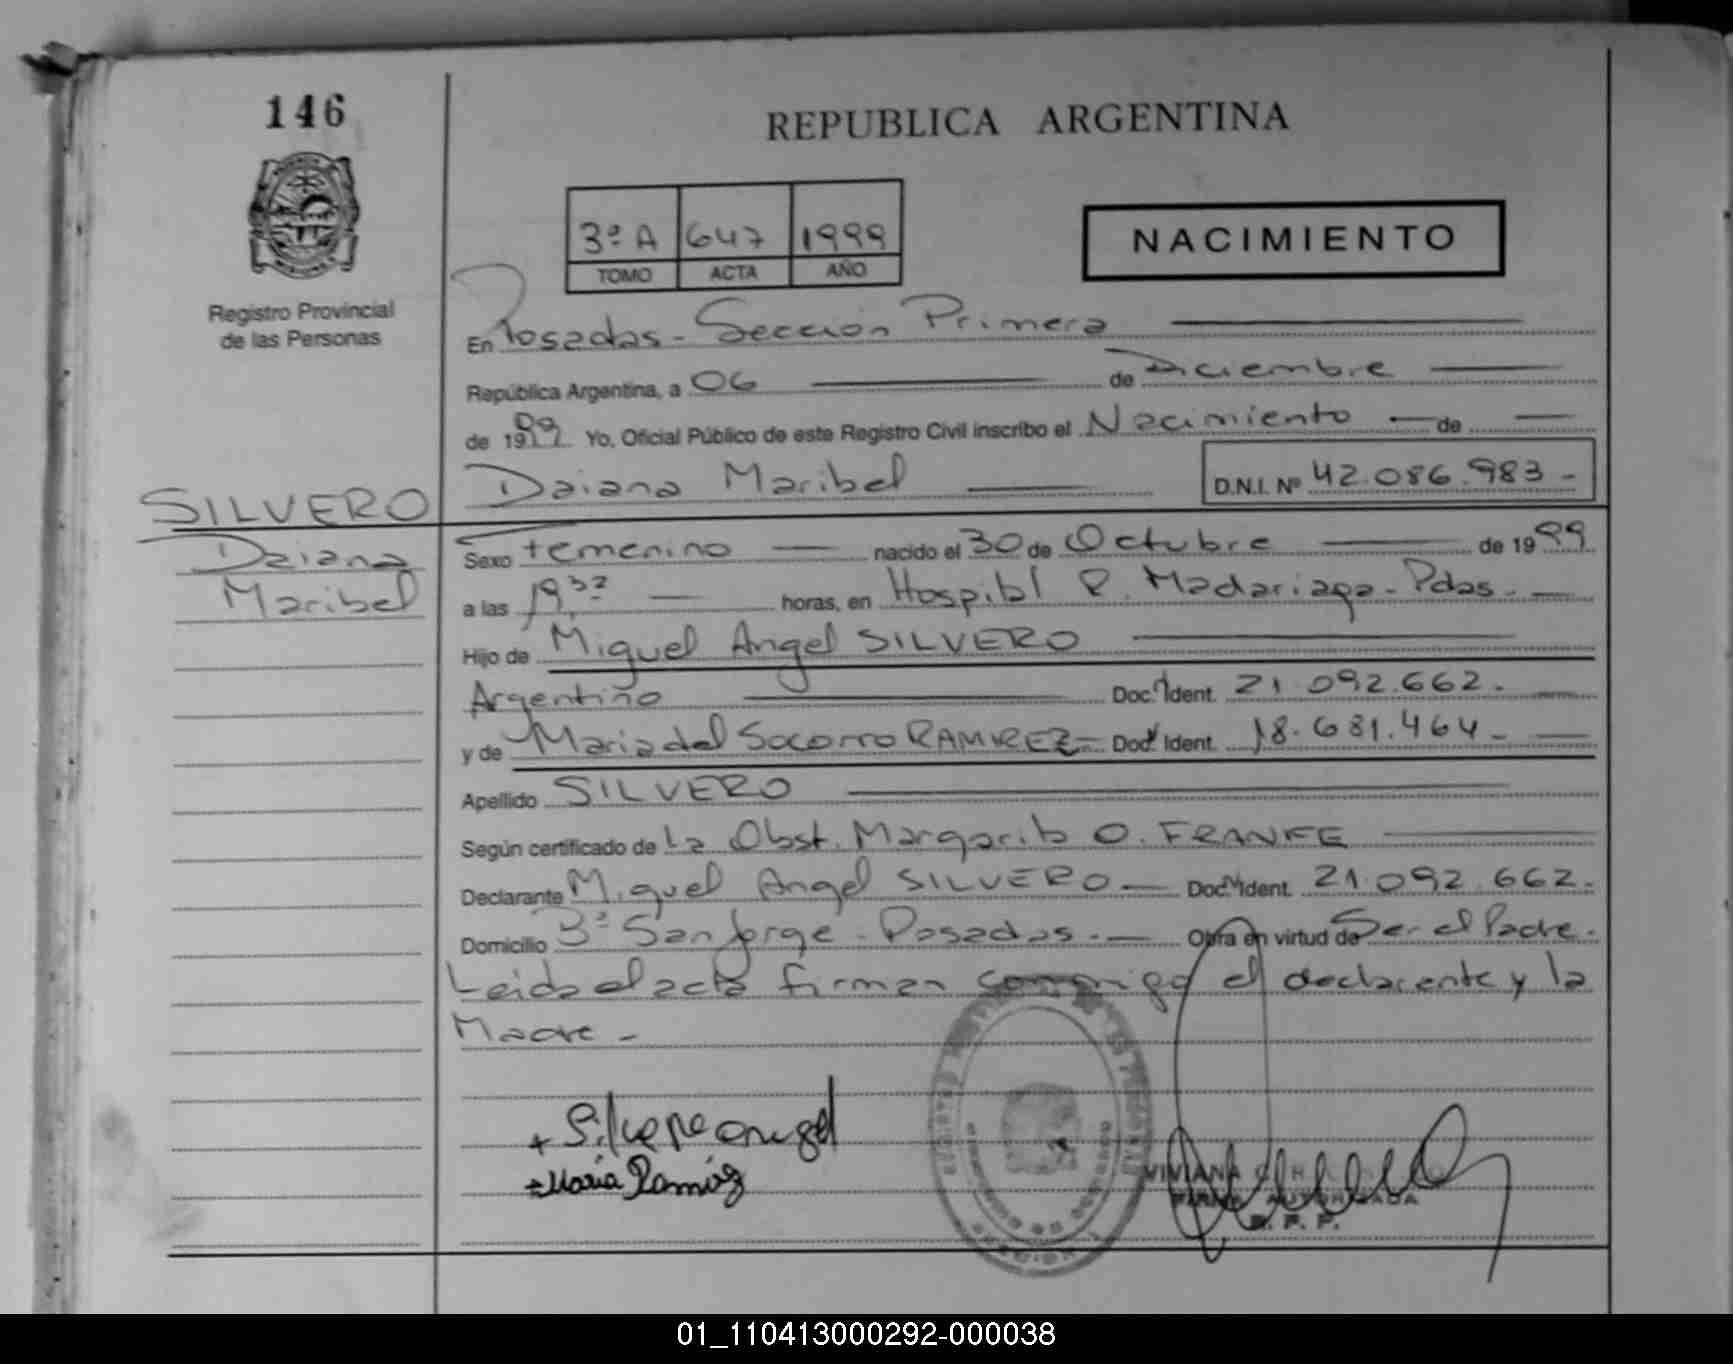 146
REPUBLICA ARGENTINA
3º A 647 1999
TOMO ACTA AÑO
NACIMIENTO
Registro Provincial
de las Personas
En Posadas - Sección Primera
República Argentina, a 06 de Diciembre
de 1999 Yo, Oficial Público de este Registro Civil inscribo el Nacimiento de
Daiana Maribel D.N.I. Nº 42.086.983 -
SILVERO
Daiana
Maribel
Sexo Femenino nacido el 30 de Octubre de 1999
a las 19.37 horas, en Hospital R. Madariaga - Pdas.
Hijo de Miguel Angel SILVERO
Argentino Doc. Ident. 21.092.662.
y de Maria del Socorro RAMIREZ - Doc. Ident. 18.681.464 -
Apellido SILVERO
Según certificado de La Obst. Margarita O. FRANKE
Declarante Miguel Angel SILVERO - Doc. Ident. 21.092.662.
Domicilio Bº San Jorge - Posadas. - Obra en virtud de Ser el Padre.
Leida el acta firman conmigo el declarante y la
Madre -
Silvero angel
Maria Ramirez
VIVIANA
FIRMA AUTORIZADA
R. P. P.
01_110413000292-000038